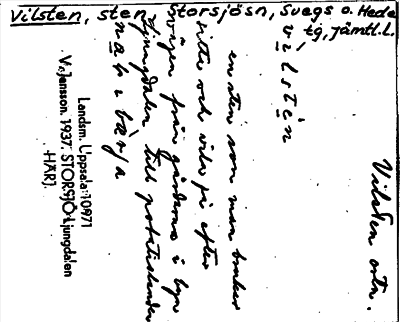 Vilsten, sten Storsjösn, Svegs o. Hede
tg, Jämtl.L.
Vilsten ortn.
vílstèn
en sten som man brukar
sitta och vila på efter
vägen från gårdarna i byn
Ljungdalen till potatislanden
Landsm. Uppsala:10971
V. Jansson. 1937. STORSJÖ:Ljungdalen
HÄRJ.